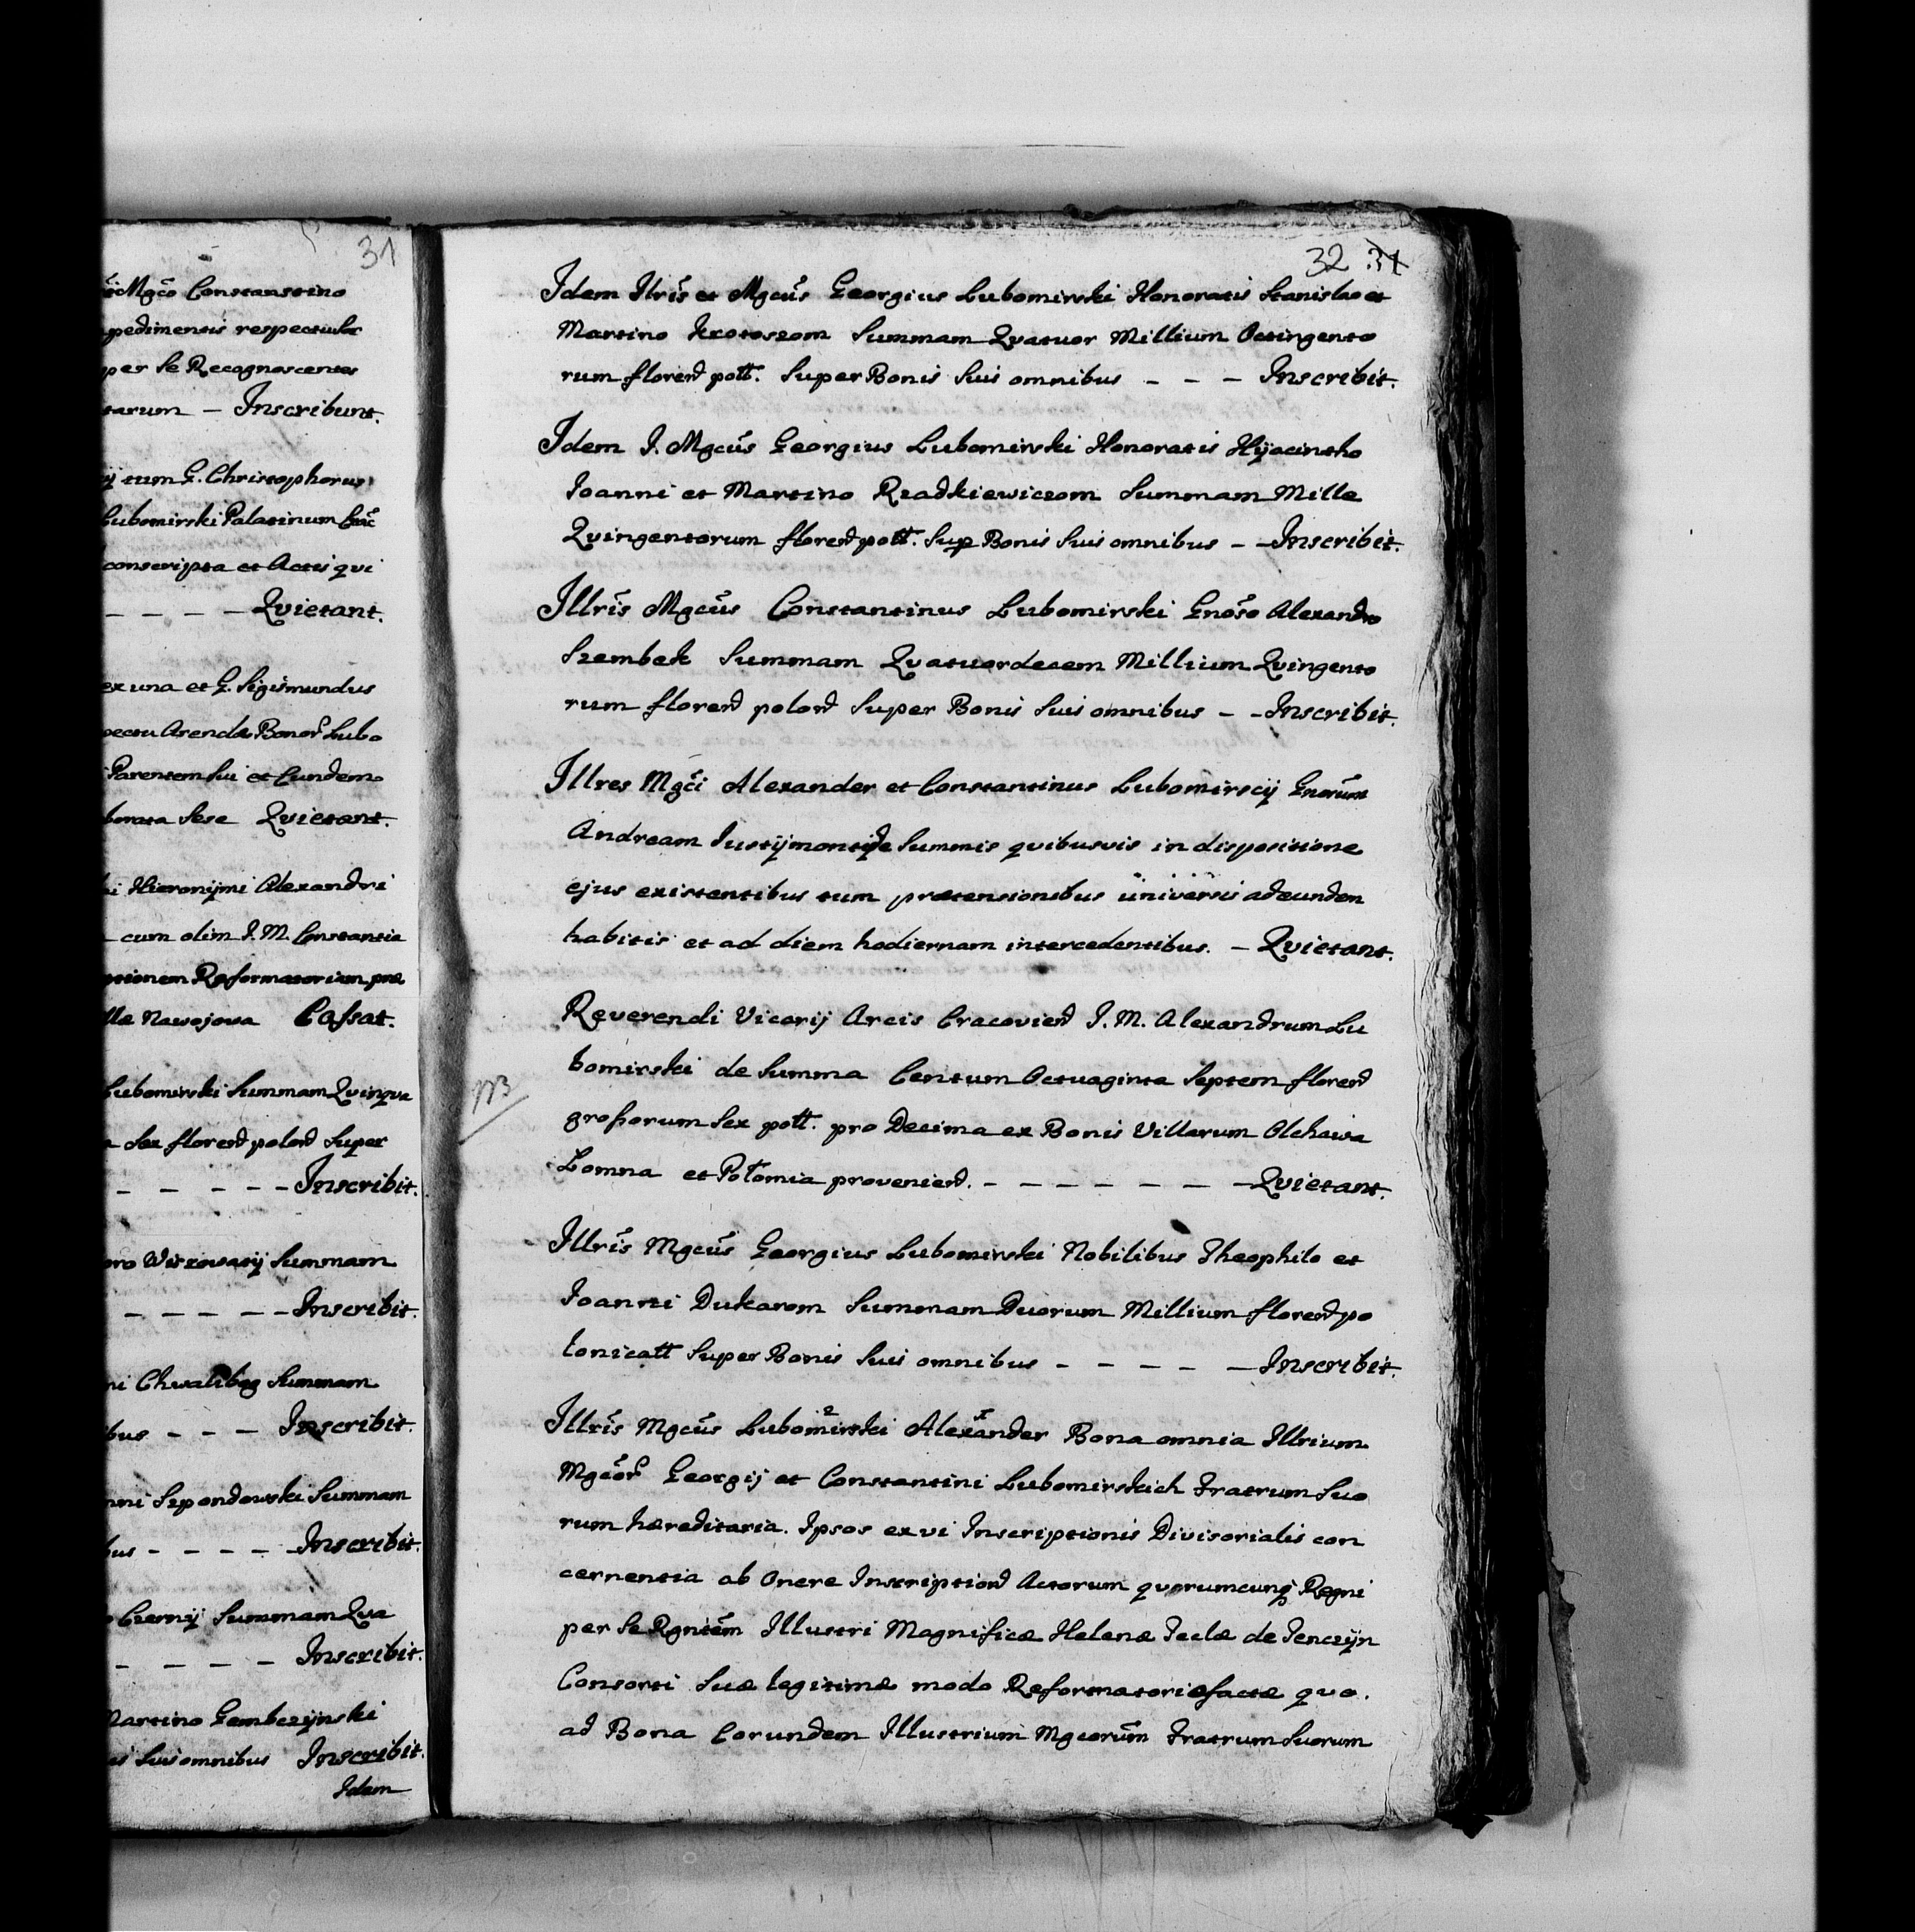 31
Mgco Constantino
pedimentis respectu
per se Recognoscentes
tarum – Inscribunt.
ij tum G. Christophorus
Lubomirski Palatinum Crac
conscripta et Actis qui
– – – – Quietant.
ex una et G. Sigismundus
pectu Arendæ Bonor Lubo
Parentem Sui et Eundem
borata Sese Quietant.
i Hieronijmi Alexandri
cum olim I. M. Constantia
ptionem Reformatoriam præ
lla Nawojowa Cassat.
Lubomirski Summam Quinque
a Sex floren polon Super
– – – – – Inscribit.
oro Wiszowatij Summam
– – – – – Inscribit.
ni Chwalibog Summam
bus – – – Inscribit.
nni Szpondowski Summam
bus – – – – Inscribit.
o Czernij Summam Qua
– – – – Inscribit.
Martino Gembczijnski
is Suis omnibus Inscribit.
Idem
32 31
Idem Ilris et Mgcus Georgius Lubomirski Honoratis Stanislao et
Martino Krotoszom Summam Quatuor Millium Octingento
rum floren poll. Super Bonis Suis omnibus – – – Inscribit.
Idem I. Mgcus Georgius Lubomirski Honoratis Hijacintho
Ioanni et Martino Rzadkiewiczom Summam Mille
Quingentorum floren poll. Sup Bonis Suis omnibus – – Inscribit.
Illris Mgcus Constantinus Lubomirski Gnoso Alexandro
Szembek Summam Quatuordecem Millium Quingento
rum floren polon Super Bonis Suis omnibus – – Inscribit.
Illres Mgci Alexander et Constantinus Lubomirscij Gnorum
Andream Sustijmont de Summis quibusvis in dispositione
ejus existentibus tum prætensionibus universis ad eundem
habitis et ad diem hodiernam intercedentibus. – Quietant.
Reverendi Vicarij Arcis Cracovien I. M. Alexandrum Lu
bomirski de Summa Centum Octuaginta Septem floren
NB
grossorum Sex poll. pro Decima ex Bonis Villarum Olchawa
Łomna et Połomia provenien. – – – – – – – Quietant.
Illris Mgcus Georgius Lubomirski Nobilibus Theophilo et
Ioanni Dukarom Summam Duorum Millium floren po
lonicall Super Bonis Suis omnibus – – – – – Inscribit.
Illris Mgcus Lubomirski Alexander Bona omnia Illrium
Mgcor Georgij et Constantini Lubomirskich Fratrum Suo
rum hæreditaria. Ipsos ex vi Inscriptionis Divisorialis con
cernentia ab Onere Inscription Actorum quorumcunq Regni
per Se Rgntem Illustri Magnificæ Helenæ Teclæ de Tenczijn
Consorti Suæ legitimæ modo Reformatorio factæ quo.
ad Bona Eorundem Illustrium Mgcorum Fratrum Suorum